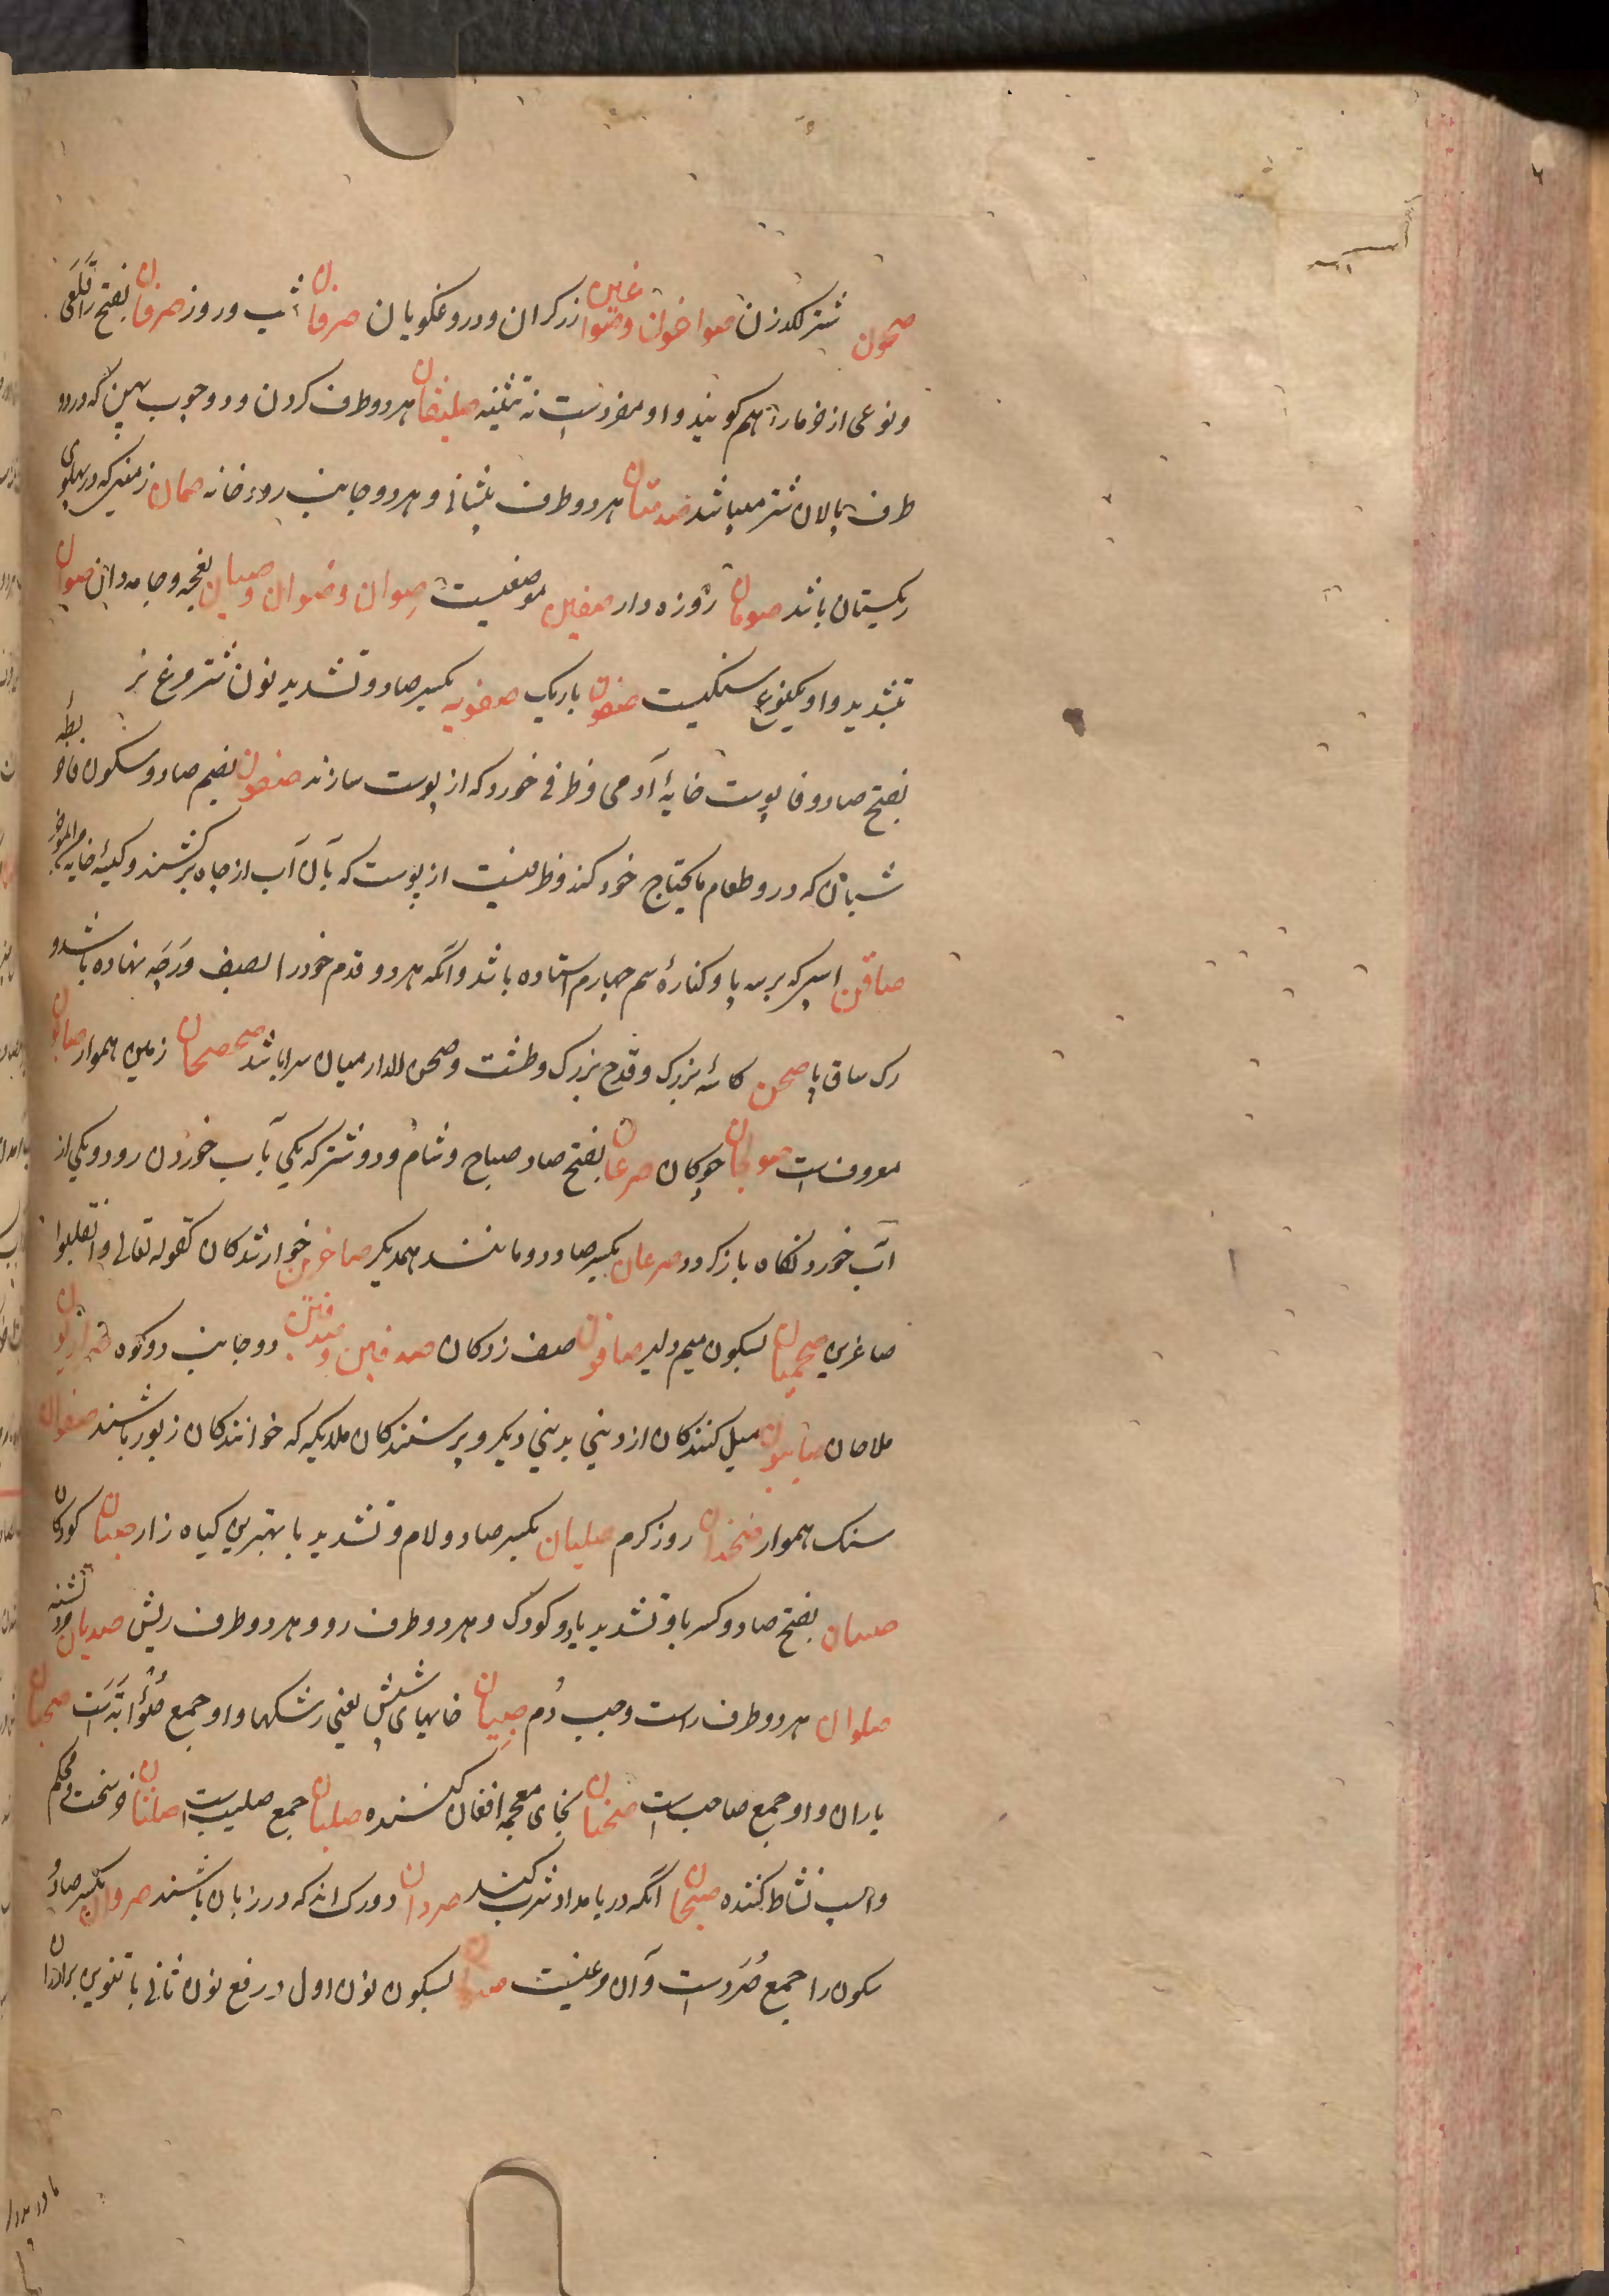 صحون شتر لکدزن صواخون وصواغین زرکران ودروغکویان صرفان شب وروز صرفان بفتح را قلعی
ونوعی از خرما را هم کویند واو مفردست نه تثنیه صلیفان هر دو طرف کردن ودو چوب پهن که در دو
طرف پالان شتر میباشد صدغان هر دو طرف پیشانی وهر دو جانب رودخانه صمان زمینی که در پهلوی
ریکستان باشد صومان روزه دار صفین موضعیست صِوان وصُوان وصیان بغچه وجامه دان صوان
بتشدید واو یکنوع سنکیست صفون باریک صفویه بکسر صاد وتشدید نون شتر مرغ نر
بفتح صاد وفا پوست خایهٔ آدمی وظرفی خورد که از پوست سازند صفون بضم صاد وسکون فا توبرهٔ
شبان که درو طعام مایحتاج خود کند وظرفیست از پوست که بآن آب از چاه برکشند وکیسهٔ خایه
صافن اسپی که بر سه پا وکنارهٔ سم چهارم استاده باشد وآنکه هر دو قدم خود را بصف ورجه نهاده باشد و
رک ساق پا صحن کاسهٔ بزرک وقدح بزرک وطشت وصحن الدار میان سرا باشد صحصحان زمین هموار صابون
معروفست صولجان چوکان صرعان بفتح صاد صباح وشام ودو شتر که یکی بآب خوردن رود ویکی از
آب خوردنکاه باز کردد صرعان بکسر صاد دو مانند همدیکر صاغرین خوار شدکان کقوله تعالی وانقلبوا
صاغرین صحمیان بسکون میم دلیر صافون صف زدکان صدفین وصدفین دو جانب دو کوه صراریون
ملاحان صابئون میل کنندکان از دینی بدینی دیکر وپرستندکان ملایکه که خوانندکان زبور باشند صفوان
سنک هموار صخدان روز کرم صلیان بکسر صاد ولام وتشدید یا بهترین کیاه زار صبیان کودکان
صبیان بفتح صاد وکسر با وتشدید یا دو کودک وهر دو طرف رو وهر دو طرف ریش صدیان مرد تشنه
صلوان هر دو طرف راست وچپ دُم صِیبان خایهای شپش یعنی رشکها واو جمع صُؤابَه است صحبان
یاران واو جمع صاحب است صخبان بخای معجمه افغان کننده صلبان جمع صلیب است صلتان خر سخت ومحکم
واسب نشاط کننده صبحان آنکه در بامداد شرب کند صردان دو رک اند که در زبان باشند صردان بکسر صاد و
سکون را جمع صُرَد است وآن مرغیست بسکون نون اول ورفع نون ثانی با تنوین برادران